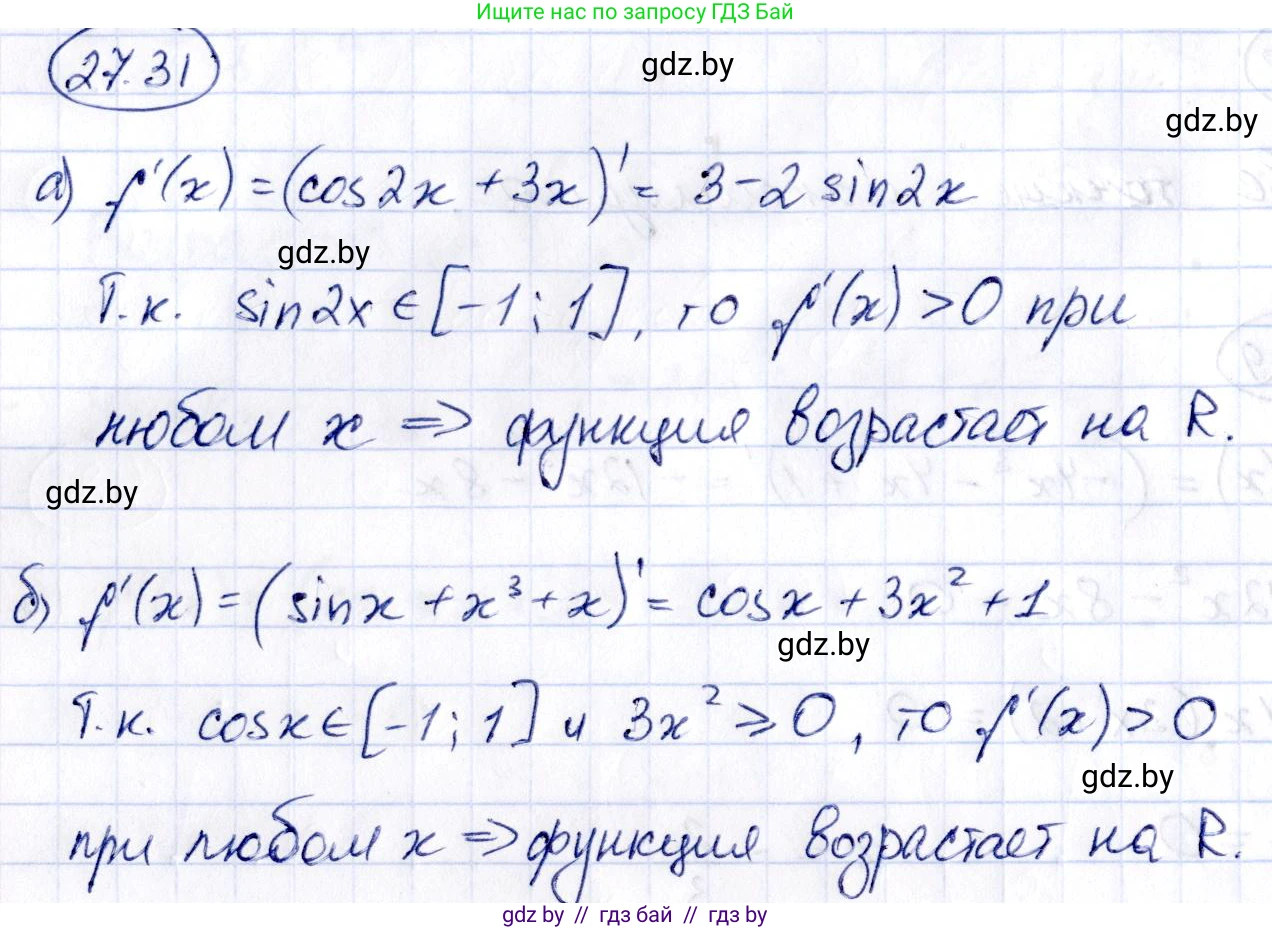 Ищите нас по запросу ГДЗ Бай
27.31
gdz.by
gdz.by
а) f'(x) = (cos2x + 3x)' = 3 - 2 sin2x
gdz.by
Т.к. sin2x ∈ [-1; 1], то f'(x) > 0 при
любом x => функция возрастает на R.
gdz.by
б) f'(x) = (sinx + x³ + x)' = cosx + 3x² + 1
gdz.by
Т.к. cosx ∈ [-1; 1] и 3x² ⩾ 0, то f'(x) > 0
gdz.by
при любом x => функция возрастает на R.
gdz by // гдз бай // гдз by